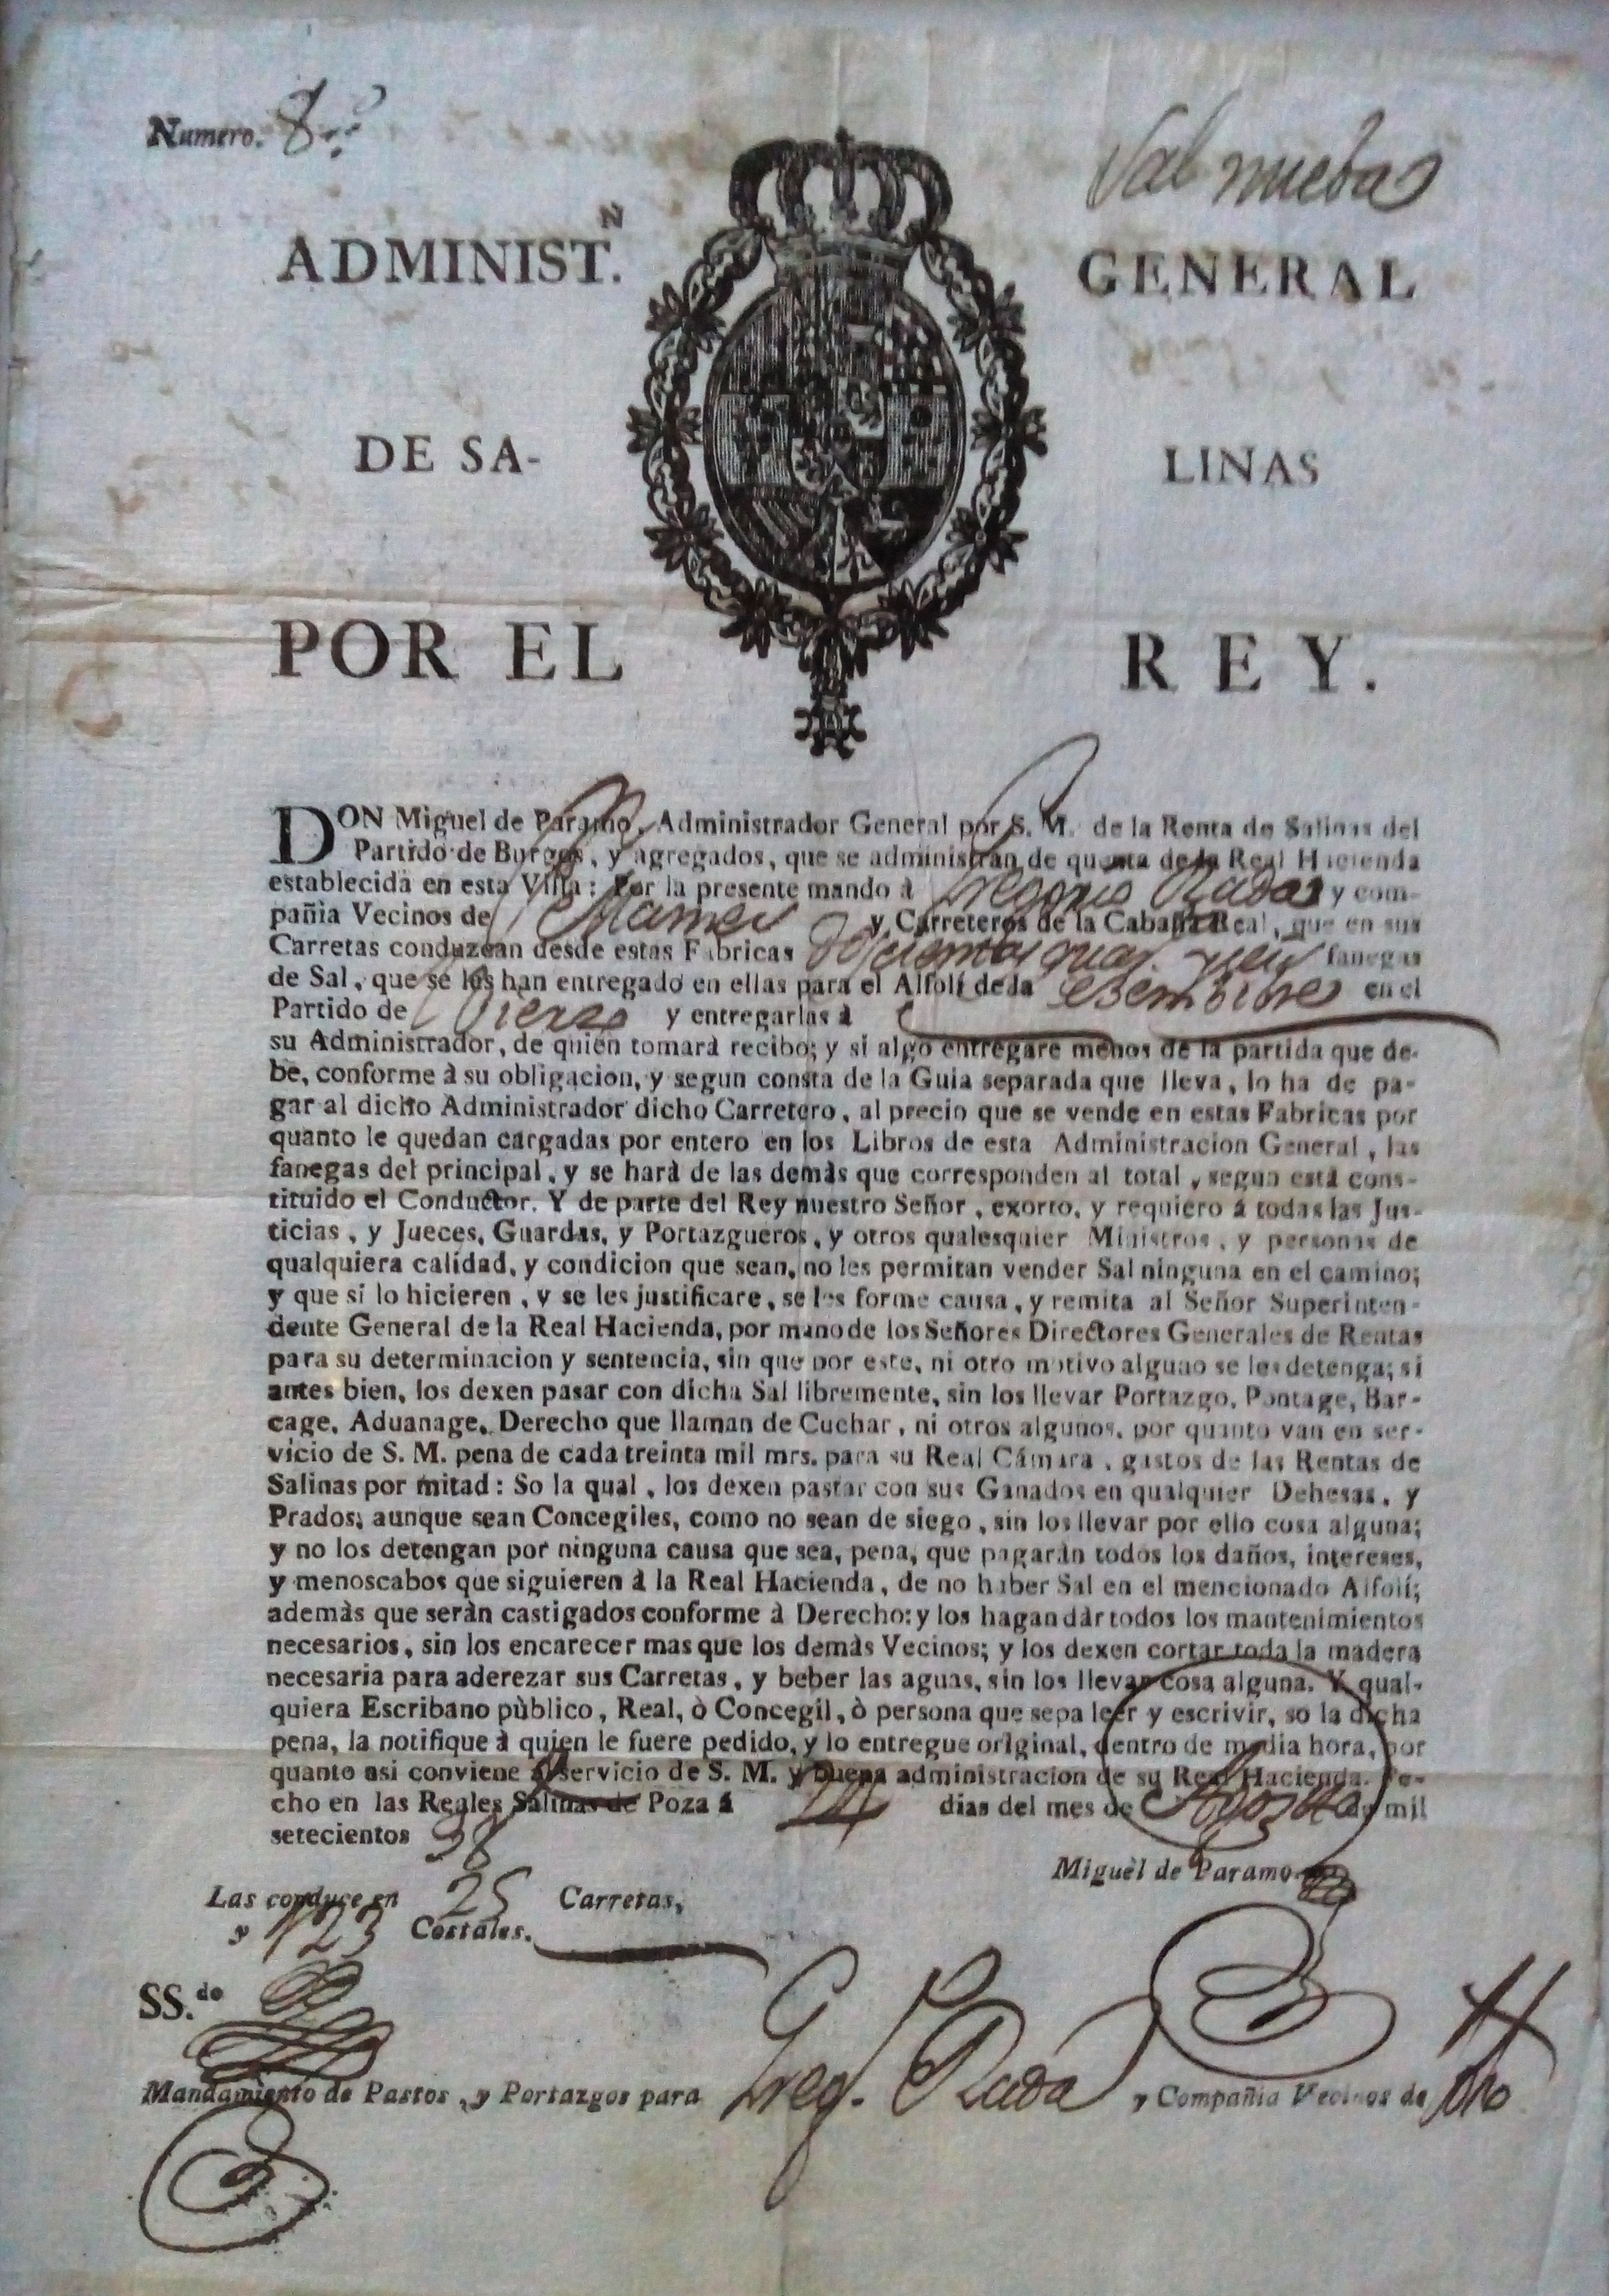 Numero. 8
Sal nueba
ADMINIST.N GENERAL
DE SA- LINAS
POR EL REY.
DON Miguel de Paramo, Administrador General por S. M. de la Renta de Salinas del
Partido de Burgos, y agregados, que se administran de quenta de la Real Hacienda
establecida en esta Villa: Por la presente mando à Gregorio Rada y com-
pañia Vecinos de y Carreteros de la Cabaña Real, que en sus
Carretas conduzcan desde estas Fabricas fanegas
de Sal, que se les han entregado en ellas para el Alfolí de la Bembibre en el
Partido de Vierzo y entregarlas à
su Administrador, de quien tomarà recibo; y si algo entregare menos de la partida que de-
be, conforme à su obligacion, y segun consta de la Guia separada que lleva, lo ha de pa-
gar al dicho Administrador dicho Carretero, al precio que se vende en estas Fabricas por
quanto le quedan cargadas por entero en los Libros de esta Administracion General, las
fanegas del principal, y se harà de las demàs que corresponden al total, segun está cons-
tituido el Conductor. Y de parte del Rey nuestro Señor, exorto, y requiero á todas las Jus-
ticias, y Jueces, Guardas, y Portazgueros, y otros qualesquier Ministros, y personas de
qualquiera calidad, y condicion que sean, no les permitan vender Sal ninguna en el camino;
y que si lo hicieren, y se les justificare, se les forme causa, y remita al Señor Superinten-
dente General de la Real Hacienda, por mano de los Señores Directores Generales de Rentas
para su determinacion y sentencia, sin que por este, ni otro motivo alguno se les detenga; si
antes bien, los dexen pasar con dicha Sal libremente, sin los llevar Portazgo, Pontage, Bar-
cage, Aduanage, Derecho que llaman de Cuchar, ni otros algunos, por quanto van en ser-
vicio de S. M. pena de cada treinta mil mrs. para su Real Cámara, gastos de las Rentas de
Salinas por mitad: So la qual, los dexen pastar con sus Ganados en qualquier Dehesas, y
Prados, aunque sean Concegiles, como no sean de siego, sin los llevar por ello cosa alguna;
y no los detengan por ninguna causa que sea, pena, que pagaràn todos los daños, intereses,
y menoscabos que siguieren à la Real Hacienda, de no haber Sal en el mencionado Alfolí;
ademàs que seràn castigados conforme à Derecho: y los hagan dàr todos los mantenimientos
necesarios, sin los encarecer mas que los demàs Vecinos; y los dexen cortar toda la madera
necesaria para aderezar sus Carretas, y beber las aguas, sin los llevar cosa alguna. Y qual-
quiera Escribano pùblico, Real, ò Concegil, ò persona que sepa leer y escrivir, so la dicha
pena, la notifique à quien le fuere pedido, y lo entregue original, dentro de media hora, por
quanto asi conviene al servicio de S. M. y buena administracion de su Real Hacienda. Fe-
cho en las Reales Salinas de Poza à dias del mes de Agosto de mil
setecientos 98
Miguèl de Paramo
Las conduce en 25 Carretas,
y 123 Costales.
SS.do
Mandamiento de Pastos, y Portazgos para Greg. Rada y Compañia Vecinos de